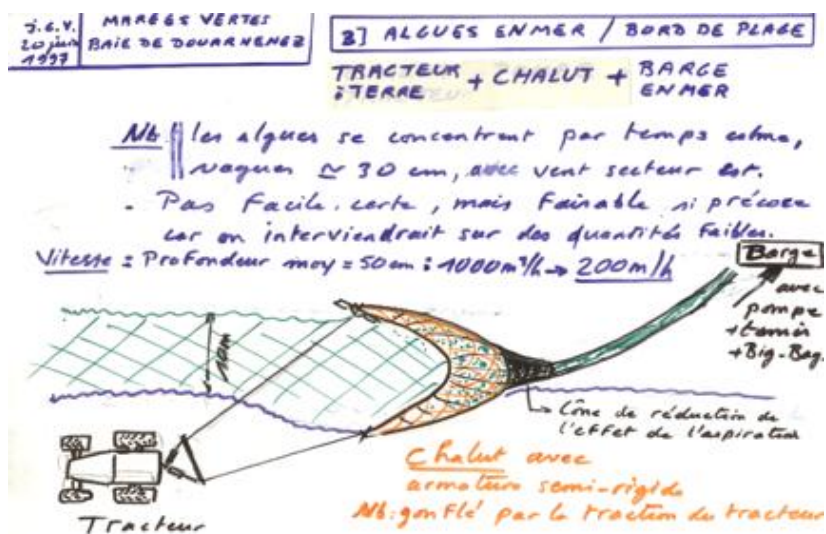 J.G.V.
20 juin
1997
MAREES VERTES
BAIE DE DOUARNENEZ
B] ALGUES EN MER / BORD DE PLAGE
TRACTEUR
à TERRE
+ CHALUT +
BARGE
EN MER
Nb les algues se concentrent par temps calme,
vagues ≃ 30 cm, avec vent secteur est.
- Pas Facile. certe, mais Faisable si précoce
car on interviendrait sur des quantités Faibles.
Vitesse = Profondeur moy = 50 cm : 1000 m³/h → 200 m/h
Barge
avec
pompe
+ tamis
+ Big-Bag.
10m
Cône de réduction de
l'effet de l'aspiration
Chalut avec
armature semi-rigide
Nb: gonflé par la traction du tracteur
Tracteur